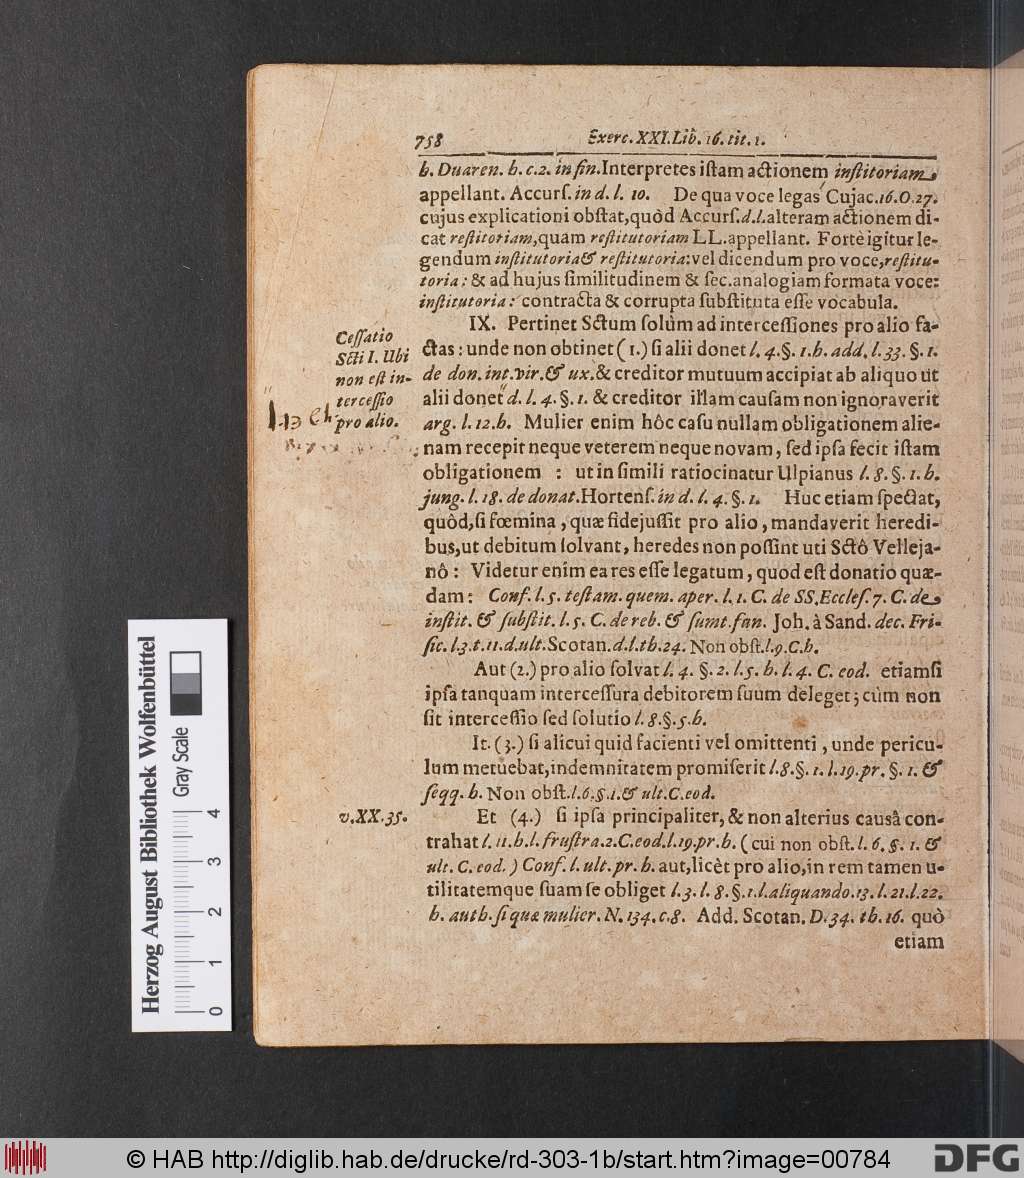 758 Exerc. XXI. Lib. 16. tit. 1.
h. Duaren. h. c. 2. in fin. Interpretes iſtam actionem inſtitoriam
appellant. Accurſ. in d. l. 10. De qua voce legas Cujac. 16. O. 27.
cujus explicationi obſtat, quòd Accurſ. d. l. alteram actionem di-
cat reſtitoriam, quam reſtitutoriam LL. appellant. Fortè igitur le-
gendum inſtitutoria & reſtitutoria: vel dicendum pro voce, reſtitu-
toria: & ad hujus ſimilitudinem & ſec. analogiam formata voce:
inſtitutoria: contracta & corrupta ſubſtituta eſſe vocabula.
IX. Pertinet Sctum ſolùm ad interceſſiones pro alio fa-
ctas: unde non obtinet (1.) ſi alii donet l. 4. §. 1. h. add. l. 33. §. 1.
de don. int. vir. & ux. & creditor mutuum accipiat ab aliquo ut
alii donet d. l. 4. §. 1. & creditor illam cauſam non ignoraverit
arg. l. 12. h. Mulier enim hôc caſu nullam obligationem alie-
nam recepit neque veterem neque novam, ſed ipſa fecit iſtam
obligationem : ut in ſimili ratiocinatur Ulpianus l. 8. §. 1. h.
jung. l. 18. de donat. Hortenſ. in d. l. 4. §. 1. Huc etiam ſpectat,
quôd, ſi fœmina, quæ fidejuſſit pro alio, mandaverit heredi-
bus, ut debitum ſolvant, heredes non poſſint uti Sctô Velleja-
nô: Videtur enim ea res eſſe legatum, quod eſt donatio quæ-
dam: Conf. l. 5. teſtam. quem. aper. l. 1. C. de SS. Eccleſ. 7. C. de
inſtit. & ſubſtit. l. 5. C. de reb. & ſumt. fun. Joh. à Sand. dec. Fri-
ſic. l. 3. t. 11. d. ult. Scotan. d. l. th. 24. Non obſt. l. 9. C. h.
Aut (2.) pro alio ſolvat l. 4. §. 2. l. 5. h. l. 4. C. eod. etiamſi
ipſa tanquam interceſſura debitorem ſuum deleget; cùm non
ſit interceſſio ſed ſolutio l. 8. §. 5. h.
It. (3.) ſi alicui quid facienti vel omittenti, unde pericu-
lum metuebat, indemnitatem promiſerit l. 8. §. 1. l. 19. pr. §. 1. &
ſeqq. h. Non obſt. l. 6. §. 1. & ult. C. eod.
Et (4.) ſi ipſa principaliter, & non alterius causâ con-
trahat l. 11. h. l. fruſtra. 2. C. eod. l. 19. pr. h. (cui non obſt. l. 6. §. 1. &
ult. C. eod.) Conf. l. ult. pr. h. aut, licèt pro alio, in rem tamen u-
tilitatemque ſuam ſe obliget l. 3. l. 8. §. 1. l. aliquando. 13. l. 21. l. 22.
h. auth. ſi qua mulier. N. 134. c. 8. Add. Scotan. D. 34. th. 16. quò
etiam
Ceſſatio
Scti I. Ubi
non eſt in-
terceſſio
pro alio.
v. XX. 35.
Herzog August Bibliothek Wolfenbüttel
Gray Scale
0 1 2 3 4
© HAB http://diglib.hab.de/drucke/rd-303-1b/start.htm?image=00784
DFG